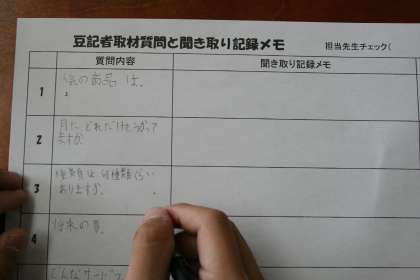 豆記者取材質問と聞き取り記録メモ
担当先生チェック(
質問内容
聞き取り記録メモ
1
の商品は、
2
月に、どれだけもうかって
ますか
3
は何種類ぐらい
ありますか。
4
将来の夢。
どんなサービス